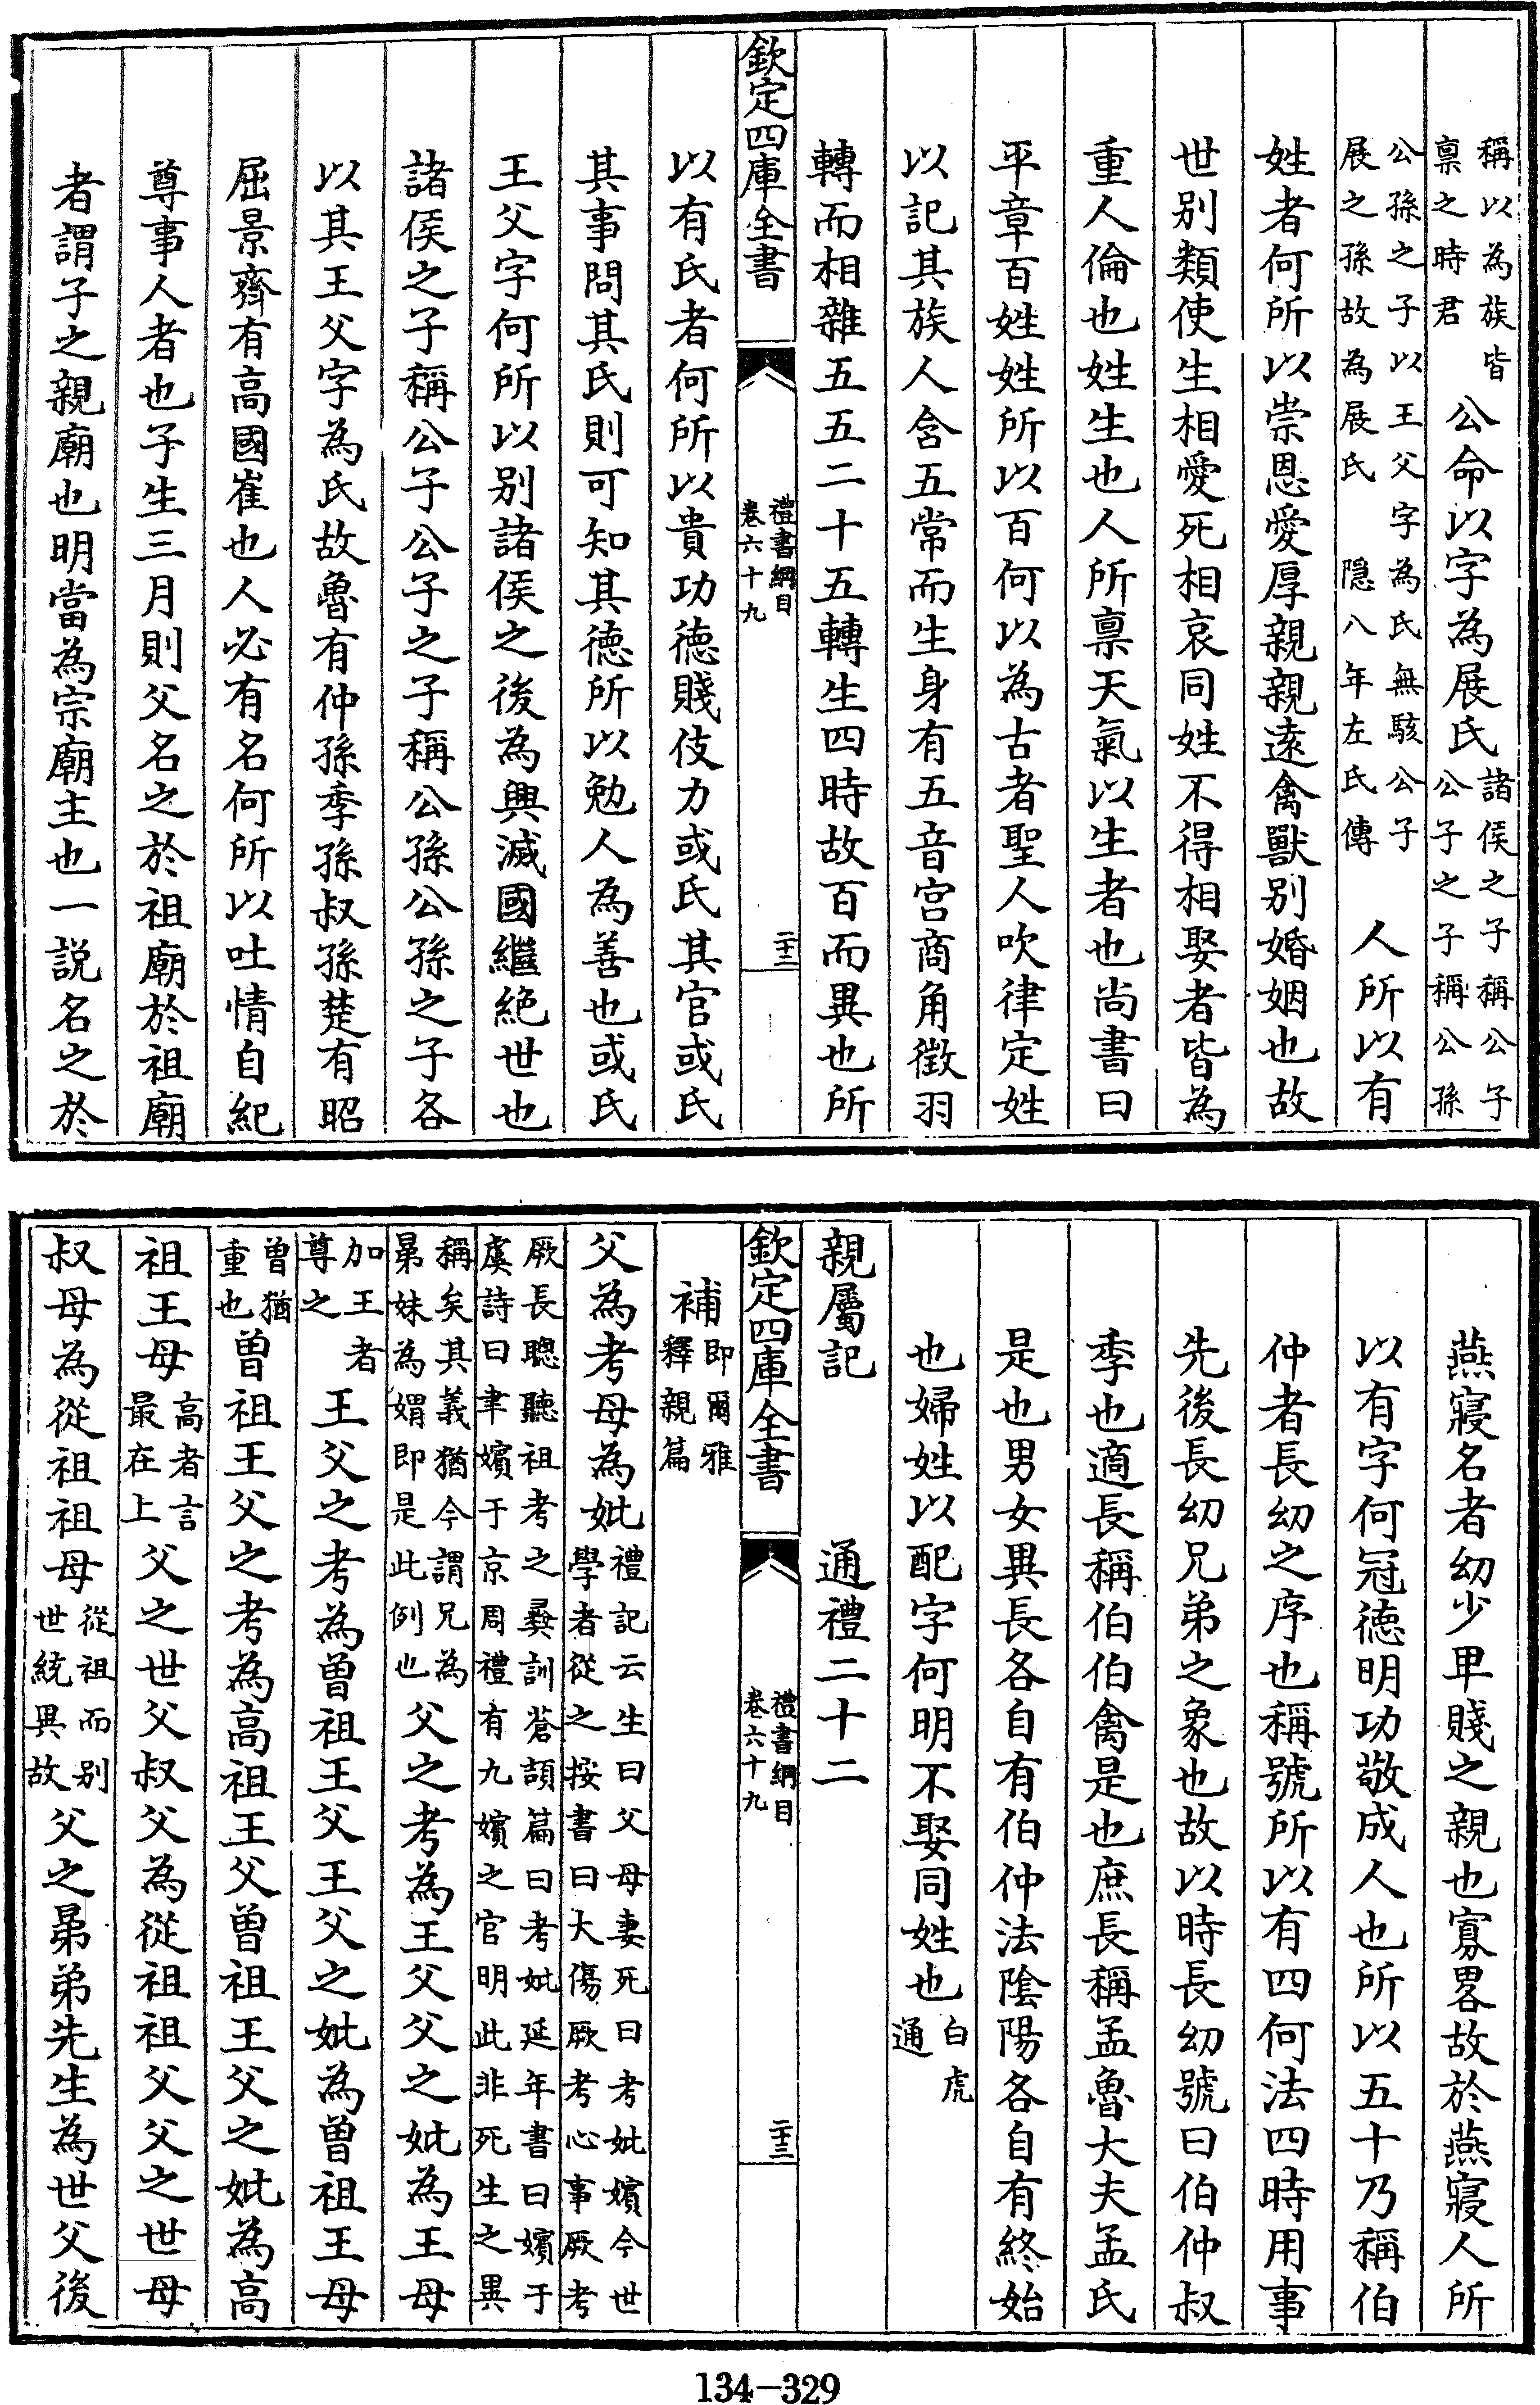 稱以為族皆稟之時君公命以字為展氏諸侯之子稱公子公子之子稱公孫
公孫之子以王父字為氏無駭公子展之孫故為展氏 隱八年左氏傳 人所以有
姓者何所以崇恩愛厚親親遠禽獸别婚姻也故
世别類使生相愛死相哀同姓不得相娶者皆為
重人倫也姓生也人所稟天氣以生者也尚書曰
平章百姓姓所以百何以為古者聖人吹律定姓
以記其族人含五常而生身有五音宫商角徵羽
轉而相雜五五二十五轉生四時故百而異也所
欽定四庫全書 禮書綱目 卷六十九 二十二
以有氏者何所以貴功德賤伎力或氏其官或氏
其事問其氏則可知其德所以勉人為善也或氏
王父字何所以别諸侯之後為興滅國繼絶世也
諸侯之子稱公子公子之子稱公孫公孫之子各
以其王父字為氏故魯有仲孫季孫叔孫楚有昭
屈景齊有高國崔也人必有名何所以吐情自紀
尊事人者也子生三月則父名之於祖廟於祖廟
者謂子之親廟也明當為宗廟主也一説名之於
燕寢名者幼少卑賤之親也寡畧故於燕寢人所
以有字何冠德明功敬成人也所以五十乃稱伯
仲者長幼之序也稱號所以有四何法四時用事
先後長幼兄弟之象也故以時長幼號曰伯仲叔
季也適長稱伯伯禽是也庶長稱孟魯大夫孟氏
是也男女異長各自有伯仲法陰陽各自有終始
也婦姓以配字何明不娶同姓也白虎通
親屬記 通禮二十二
欽定四庫全書 禮書綱目 卷六十九 二十三
補即爾雅釋親篇
父為考母為妣禮記云生曰父母妻死曰考妣嬪今世學者從之按書曰大傷厥考心事厥考
厥長聰聽祖考之彝訓蒼頡篇曰考妣延年書曰嬪于虞詩曰聿嬪于京周禮有九嬪之官明此非死生之異
稱矣其義猶今謂兄為晜妹為媦即是此例也父之考為王父父之妣為王母
加王者尊之王父之考為曾祖王父王父之妣為曾祖王母
曽猶重也曾祖王父之考為高祖王父曾祖王父之妣為高
祖王母高者言最在上父之世父叔父為從祖祖父父之世母
叔母為從祖祖母從祖而别世統異故父之晜弟先生為世父後
134-329